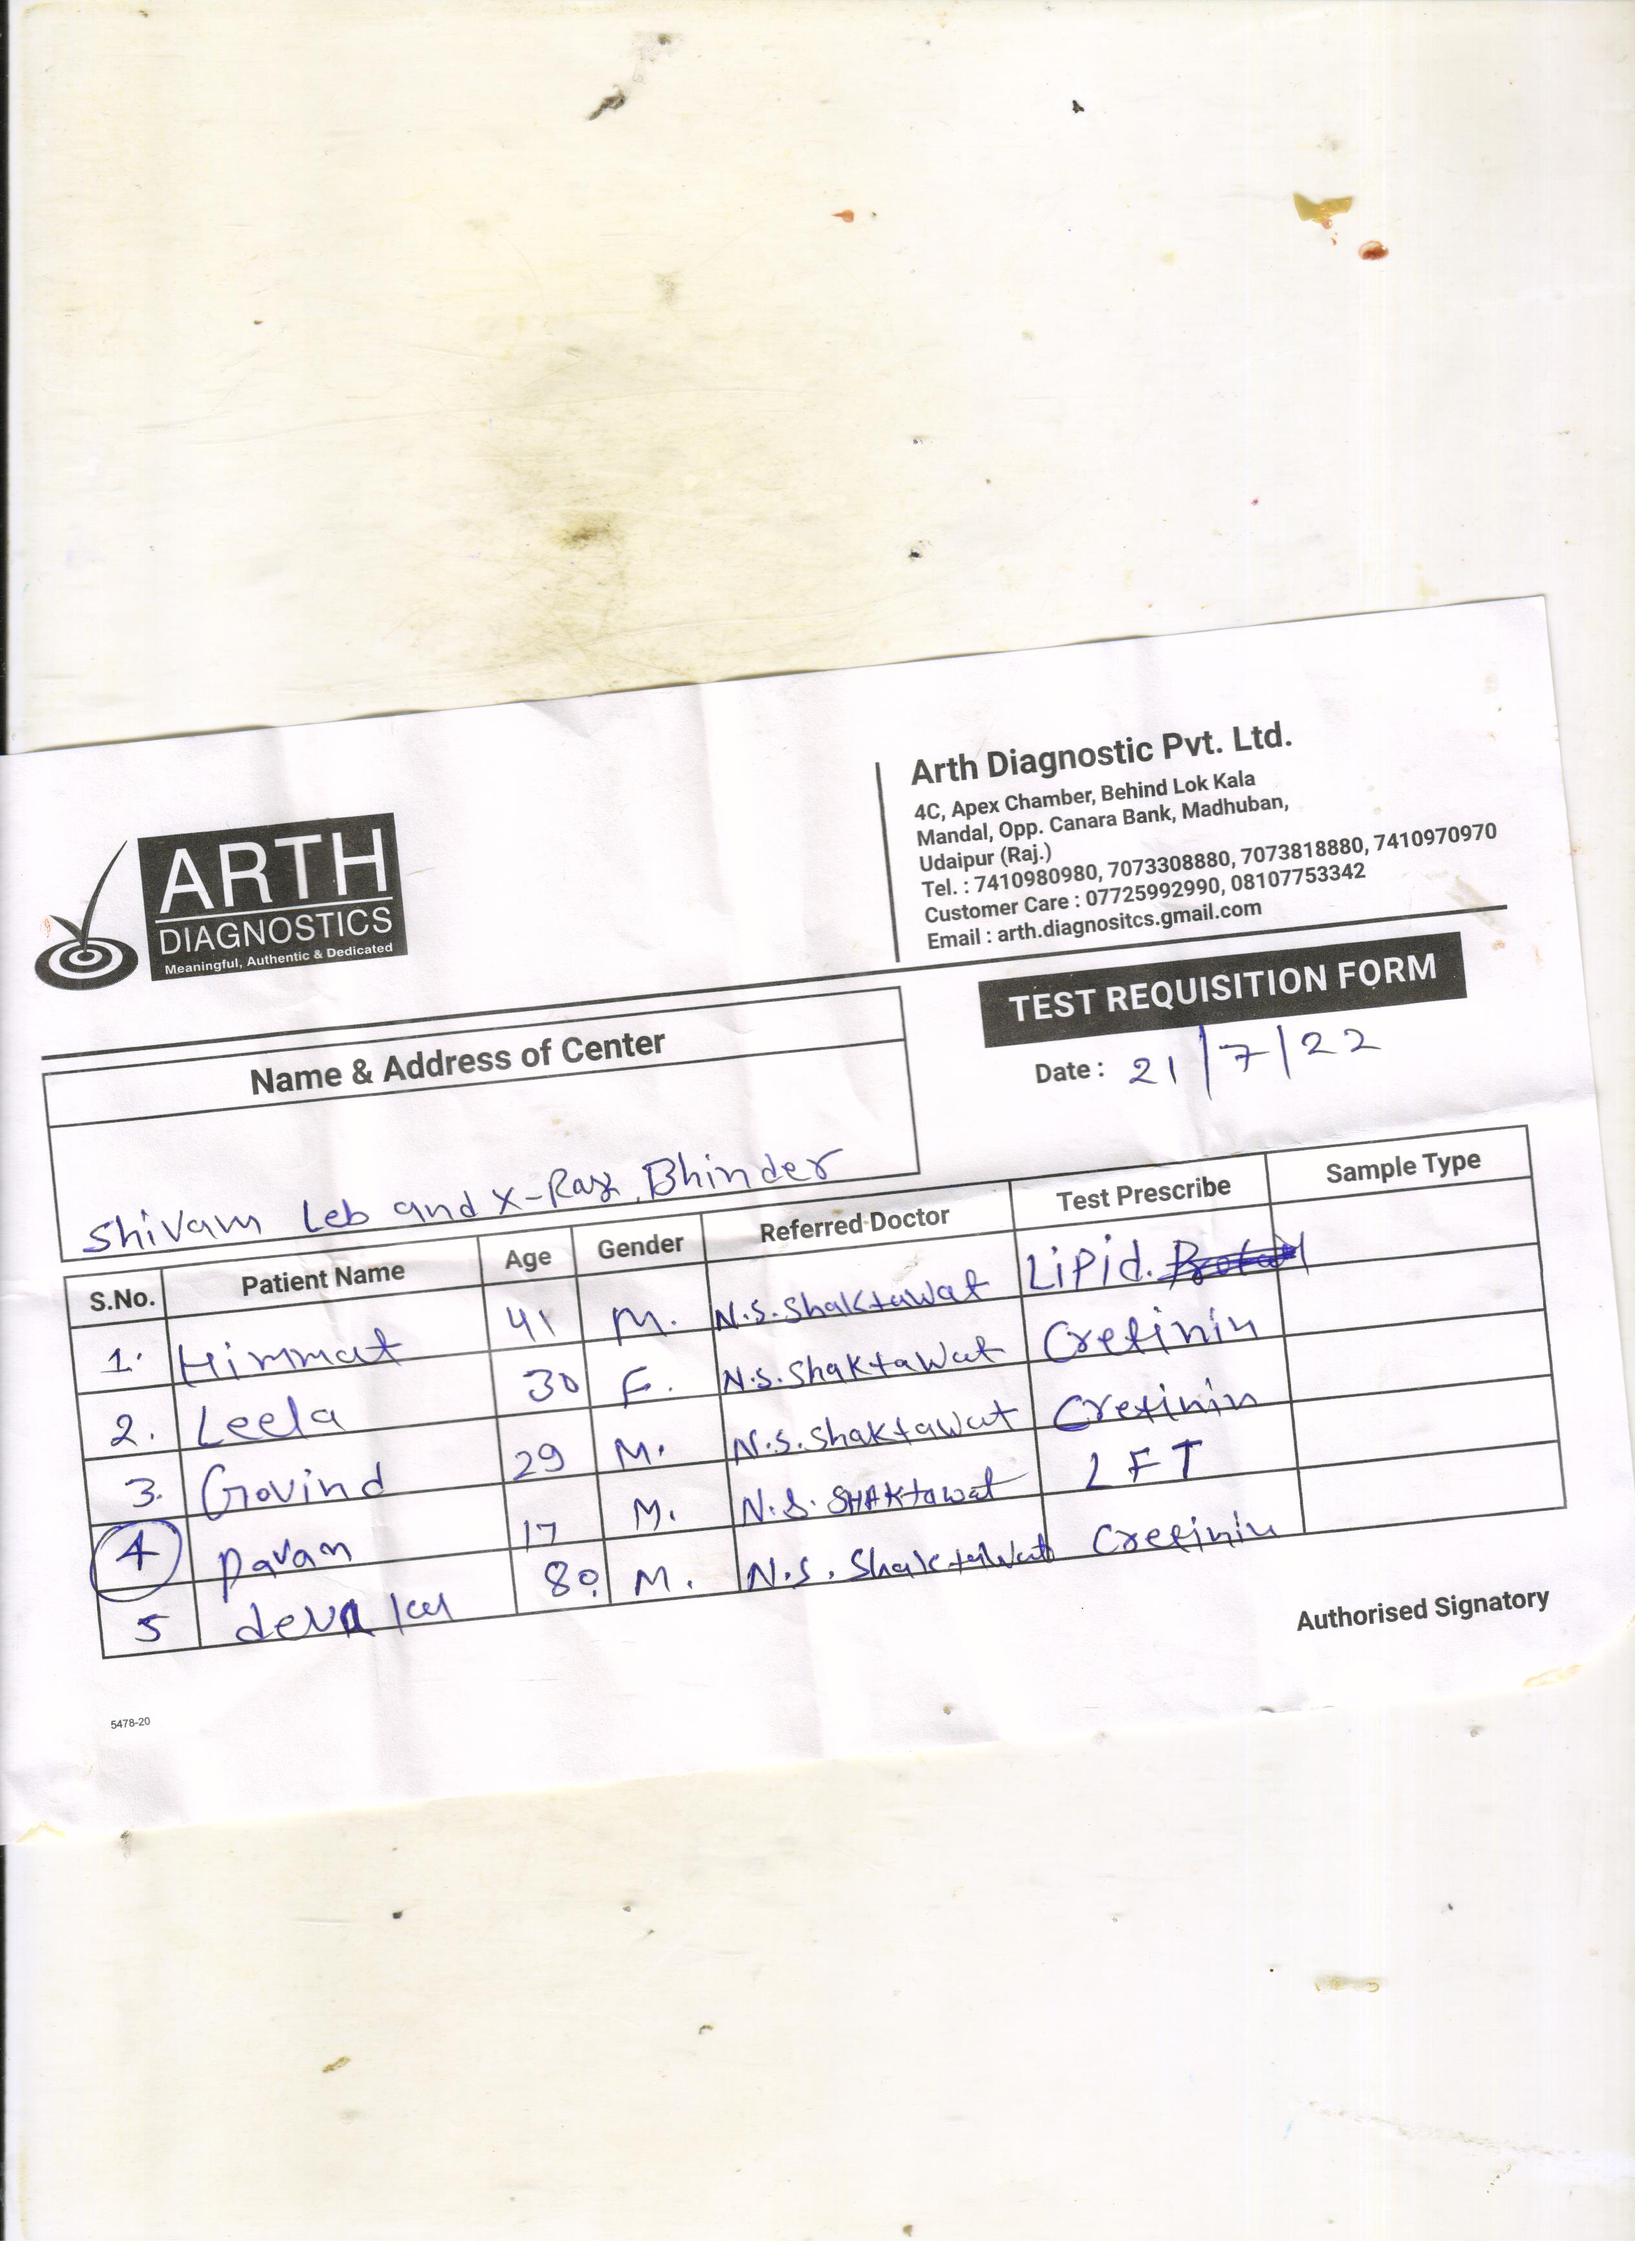 ARTH
DIAGNOSTICS
Meaningful, Authentic & Dedicated
Arth Diagnostic Pvt. Ltd.
4C, Apex Chamber, Behind Lok Kala
Mandal, Opp. Canara Bank, Madhuban,
Udaipur (Raj.)
Tel. : 7410980980, 7073308880, 7073818880, 7410970970
Customer Care : 07725992990, 08107753342
Email : arth.diagnositcs.gmail.com
TEST REQUISITION FORM
Date : 21/7/22
Name & Address of Center
Shivam Leb and X-Ray, Bhinder
S.No. Patient Name Age Gender Referred Doctor Test Prescribe Sample Type
1. Himmat 41 M. N.S. Shaktawat Lipid.
2. Leela 30 F. N.S. Shaktawat Cretinin
3. Govind 29 M. N.S. Shaktawat Cretinin
4 Pavan 17 M. N.S. SHAKtawat LFT
5 80 M. N.S. Shaktawat Cretinin
Authorised Signatory
5478-20